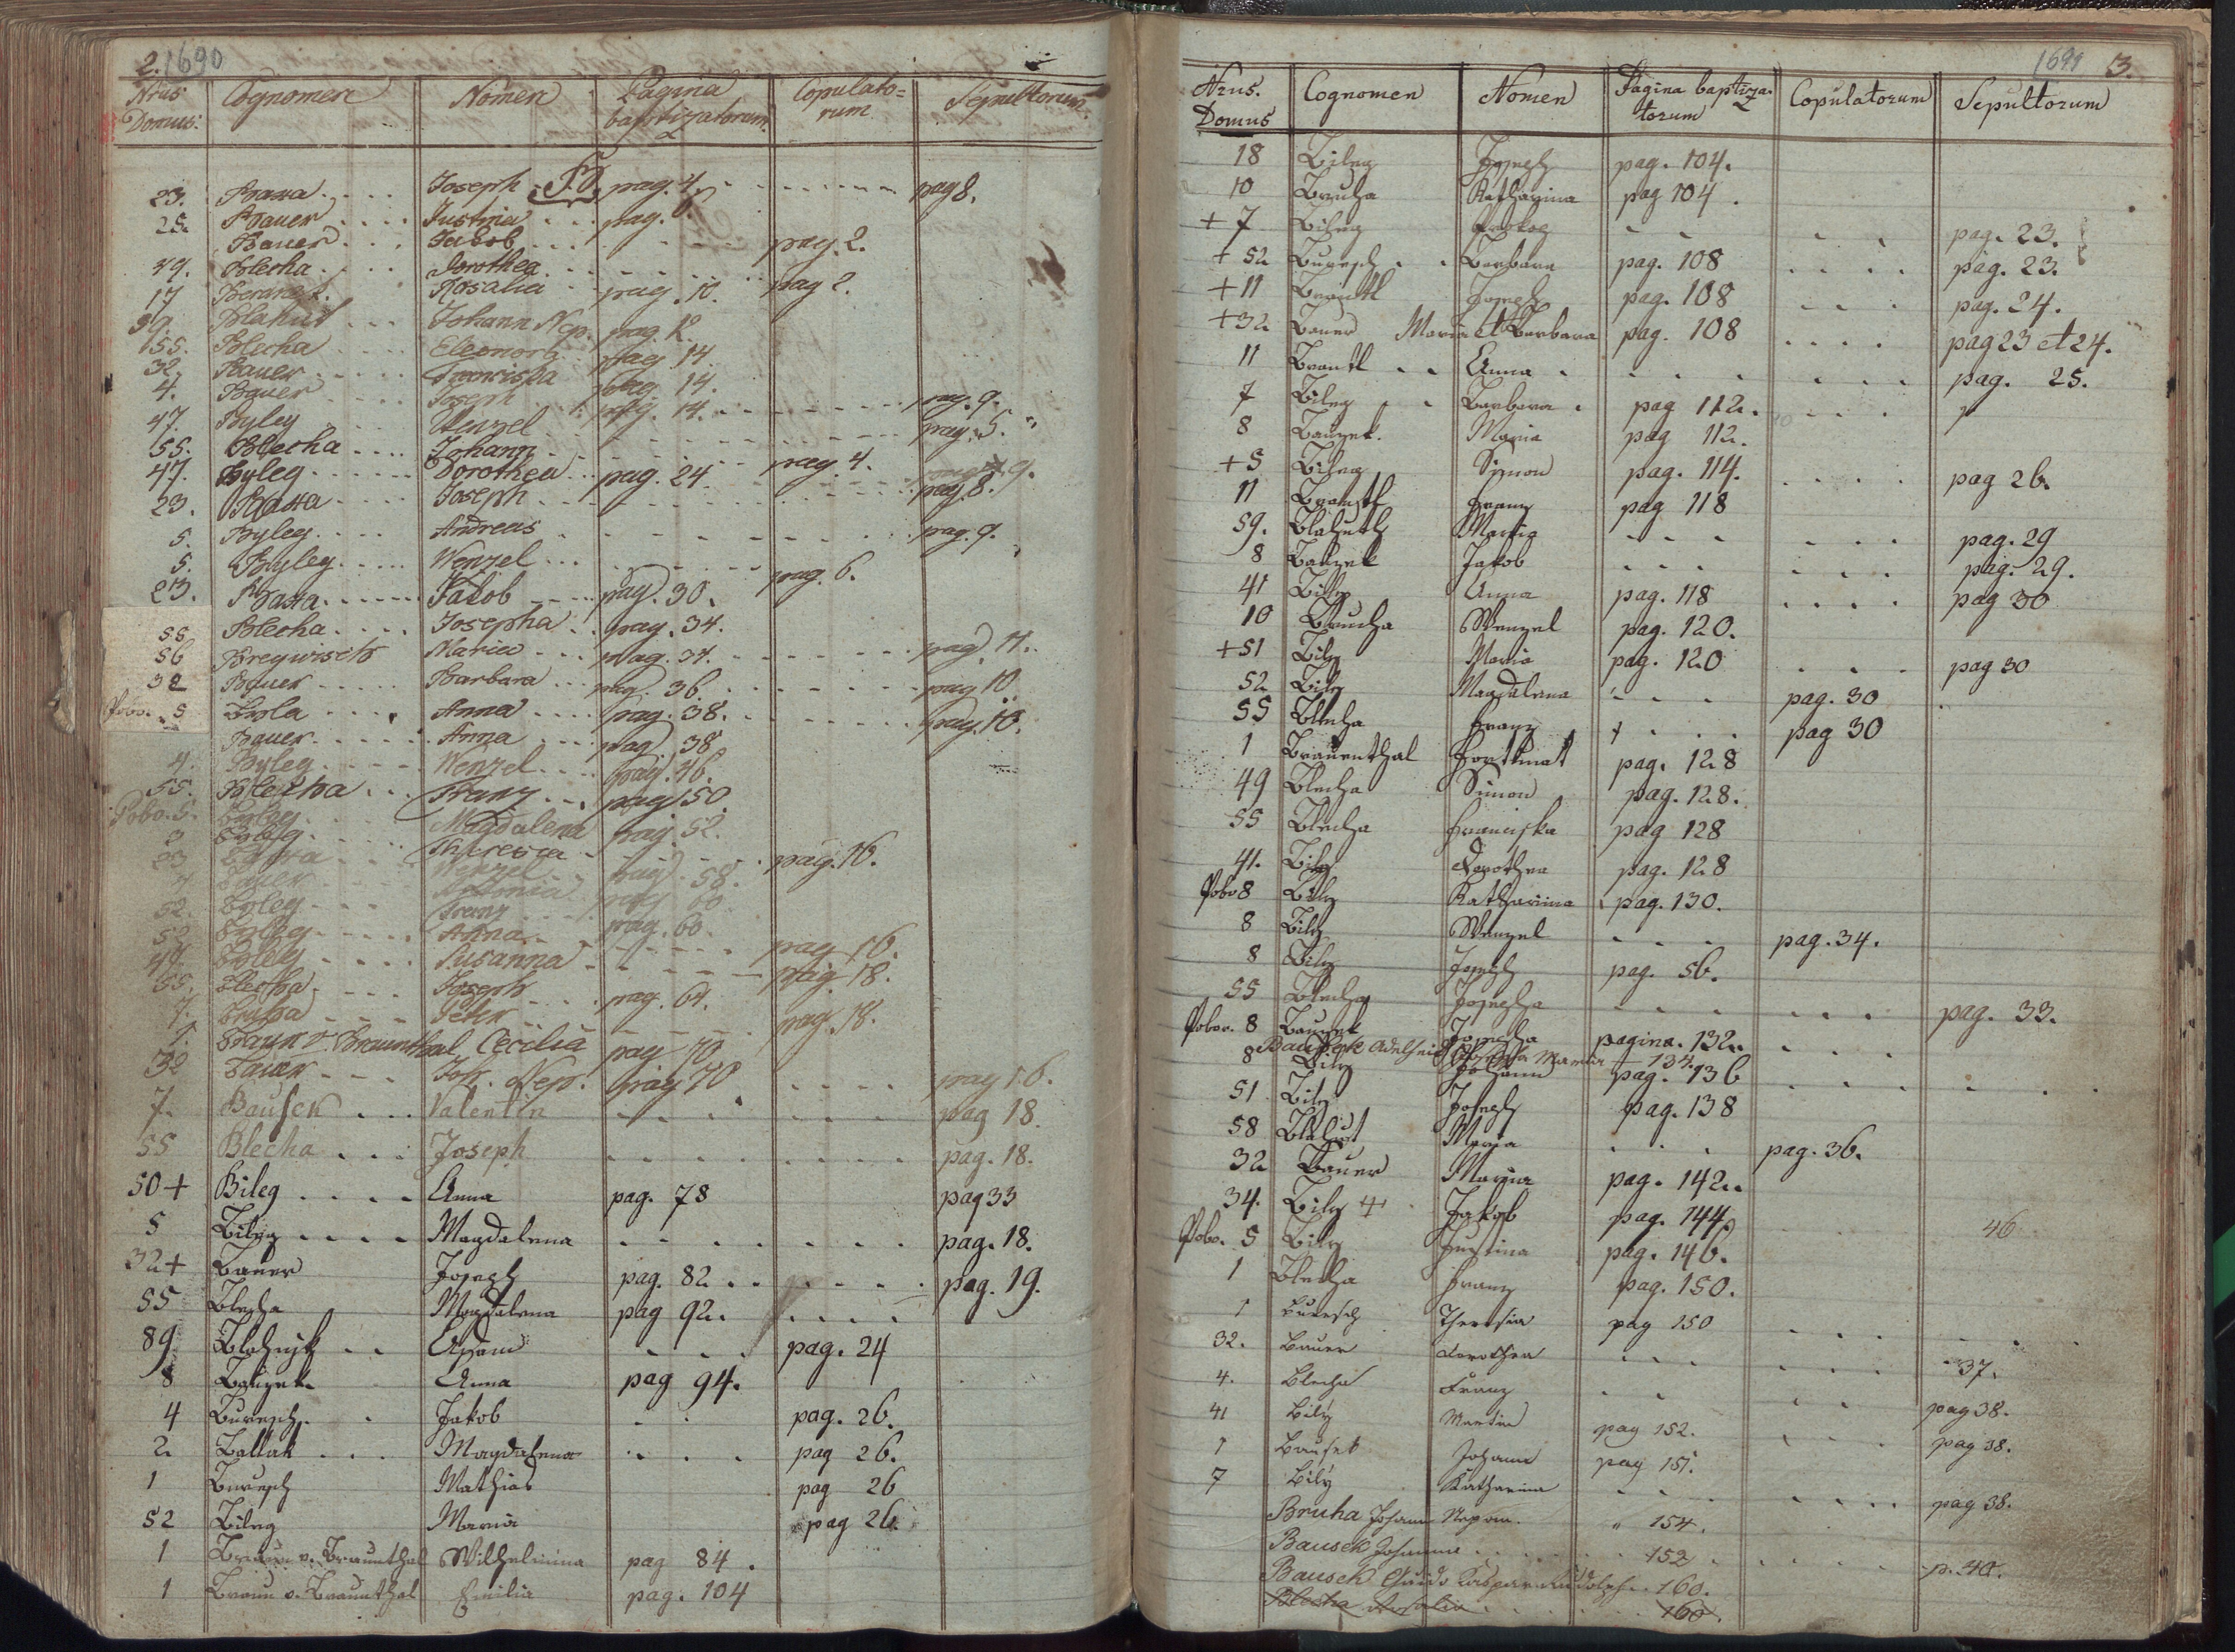 2. 1690
Nrus Domus: Cognomen Nomen Pagina baptizatorum Copulatorum Sepultorum
23. Basta.... Joseph pag. 4. pag 8.
25. Bauer.... Justina... pag. 6.
Bauer... Jakob... pag. 2.
49. Blecha.... Dorothea... pag 2.
17 Rosalia pag. 10.
59. Blahut... Johann Nep. pag. 12
155. Blecha.... Eleonora pag 14
32. Bauer..... Franciska pag. 14.
4. Bauer.... Joseph pag. 14. pag. 9.
47. Byley.... Wenzel pag. 5.
55. Blecha.... Johann pag. 4.
47. Byley..... Dorothea... pag. 24 pag. 9.
23. Basta.... Joseph pag 8.
5. Byley.... Andreas pag. 9.
5. Byley..... Wenzel... pag. 6.
23. Basta...... Jakob pag. 30.
55 Blecha.... Josepha.. pag. 34.
56 Maria... pag. 34. pag. 11.
32 Bauer..... Barbara... pag. 36. pag 10.
Pobo. 5 Anna.... pag. 38. pag. 10.
Bauer...... Anna... pag. 38
4. Byley..... Wenzel.... pag. 46.
55. Blecha... Franz... pag 50.
Pobo. 5. Byley Magdalena pag. 52.
3 Byley Theresia pag. 16.
23 Basta Wenzel pag. 58.
4 Bauer Antonia pag 60
52. Byley... Franz pag. 60.
52 Byley..... Anna pag. 16.
49. Byley.... Susanna pag. 18.
55. Blecha.... Joseph pag. 64.
7. Bruha.... Peter pag. 18.
1. Braun v. Braunthal Cecilia pag 70
32 Bauer... Joh. Nep. pag 70 pag 16.
7. Bausek... Valentin pag 18.
55 Blecha... Joseph pag. 18.
50+ Bileg.... Anna pag. 78 pag 33
5 Bileg.... Magdalena pag. 18.
32+ Bauer Joseph pag. 82.. pag. 19.
55 Blecha Magdalena pag 92.
89 Adam pag. 24
8 Bausek. Anna pag 94.
4 Buresch. Jakob pag. 26.
2. Ballak... Magdalena pag 26.
1 Buresch Mathias pag 26
52 Bileg Maria pag 26.
1 Braun v. Braunthal Wilhelmina pag 84.
1 Braun v. Braunthal Emilia pag. 104
1691 3.
Nrus. Domus Cognomen Nomen Pagina baptizatorum Copulatorum Sepultorum
18 Bileg Joseph pag. 104.
10 Bruha Katharina pag 104.
+7 Bileg Prokop pag. 23.
+52 Buresch.. Barbara pag. 108 pag. 23.
+11 Brantl Joseph pag. 108 pag. 24.
+32 Bauer Maria et Barbara pag. 108 pag 23 et 24.
11 Brantl.. Anna. pag. 25.
7 Bileg.. Barbara. pag 112.
8 Bausek. Maria pag 112.
+5 Bileg Simon pag. 114. pag 26.
11 Brantl Franz pag 118
59. Blahuth Maria pag. 29
8 Bausek Jakob pag. 29.
41 Bily Anna pag. 118 pag 30
10 Brucha Wenzel pag. 120.
+51 Bily Maria pag. 120 pag 30
52 Bily Magdalena pag. 30
55 Blecha Franz pag 30
1 Braunenthal Fortunat pag. 128
49 Blecha Simon pag. 128.
55 Blecha Franciska pag 128
41. Bily Dorothea pag. 128
Pobo 8 Bily Katharina pag. 130.
8 Bily Wenzel pag. 34.
8 Bily Joseph pag. 56.
55 Blecha Josepha pag. 33.
Pobor. 8 Bausek Josepha pagina. 132..
Bausek Adelheid Maria 134.
8 Bily Johann pag. 136
51 Bily Joseph pag. 138
58 Blahut Maria pag. 36.
32 Bauer Maria pag. 142..
34. Bily + Jakob pag. 144.
Pobo. 5 Bily Justina pag. 146. 46
1 Blecha Franz pag. 150.
1 Buresch Theresia pag 150
32. Bauer Dorothea 37.
4. Blecha Franz pag 38.
41 Bily Martin pag 152. pag 38.
1 Bausek Johann pag 151.
7 Bily Katharina pag 38.
Bruha Johann Nepom. " 154.
Bausek Johanna 152 p. 40.
Bausek Guido Kaspar Rudolph.. 160.
Blecha Rosalia 160.